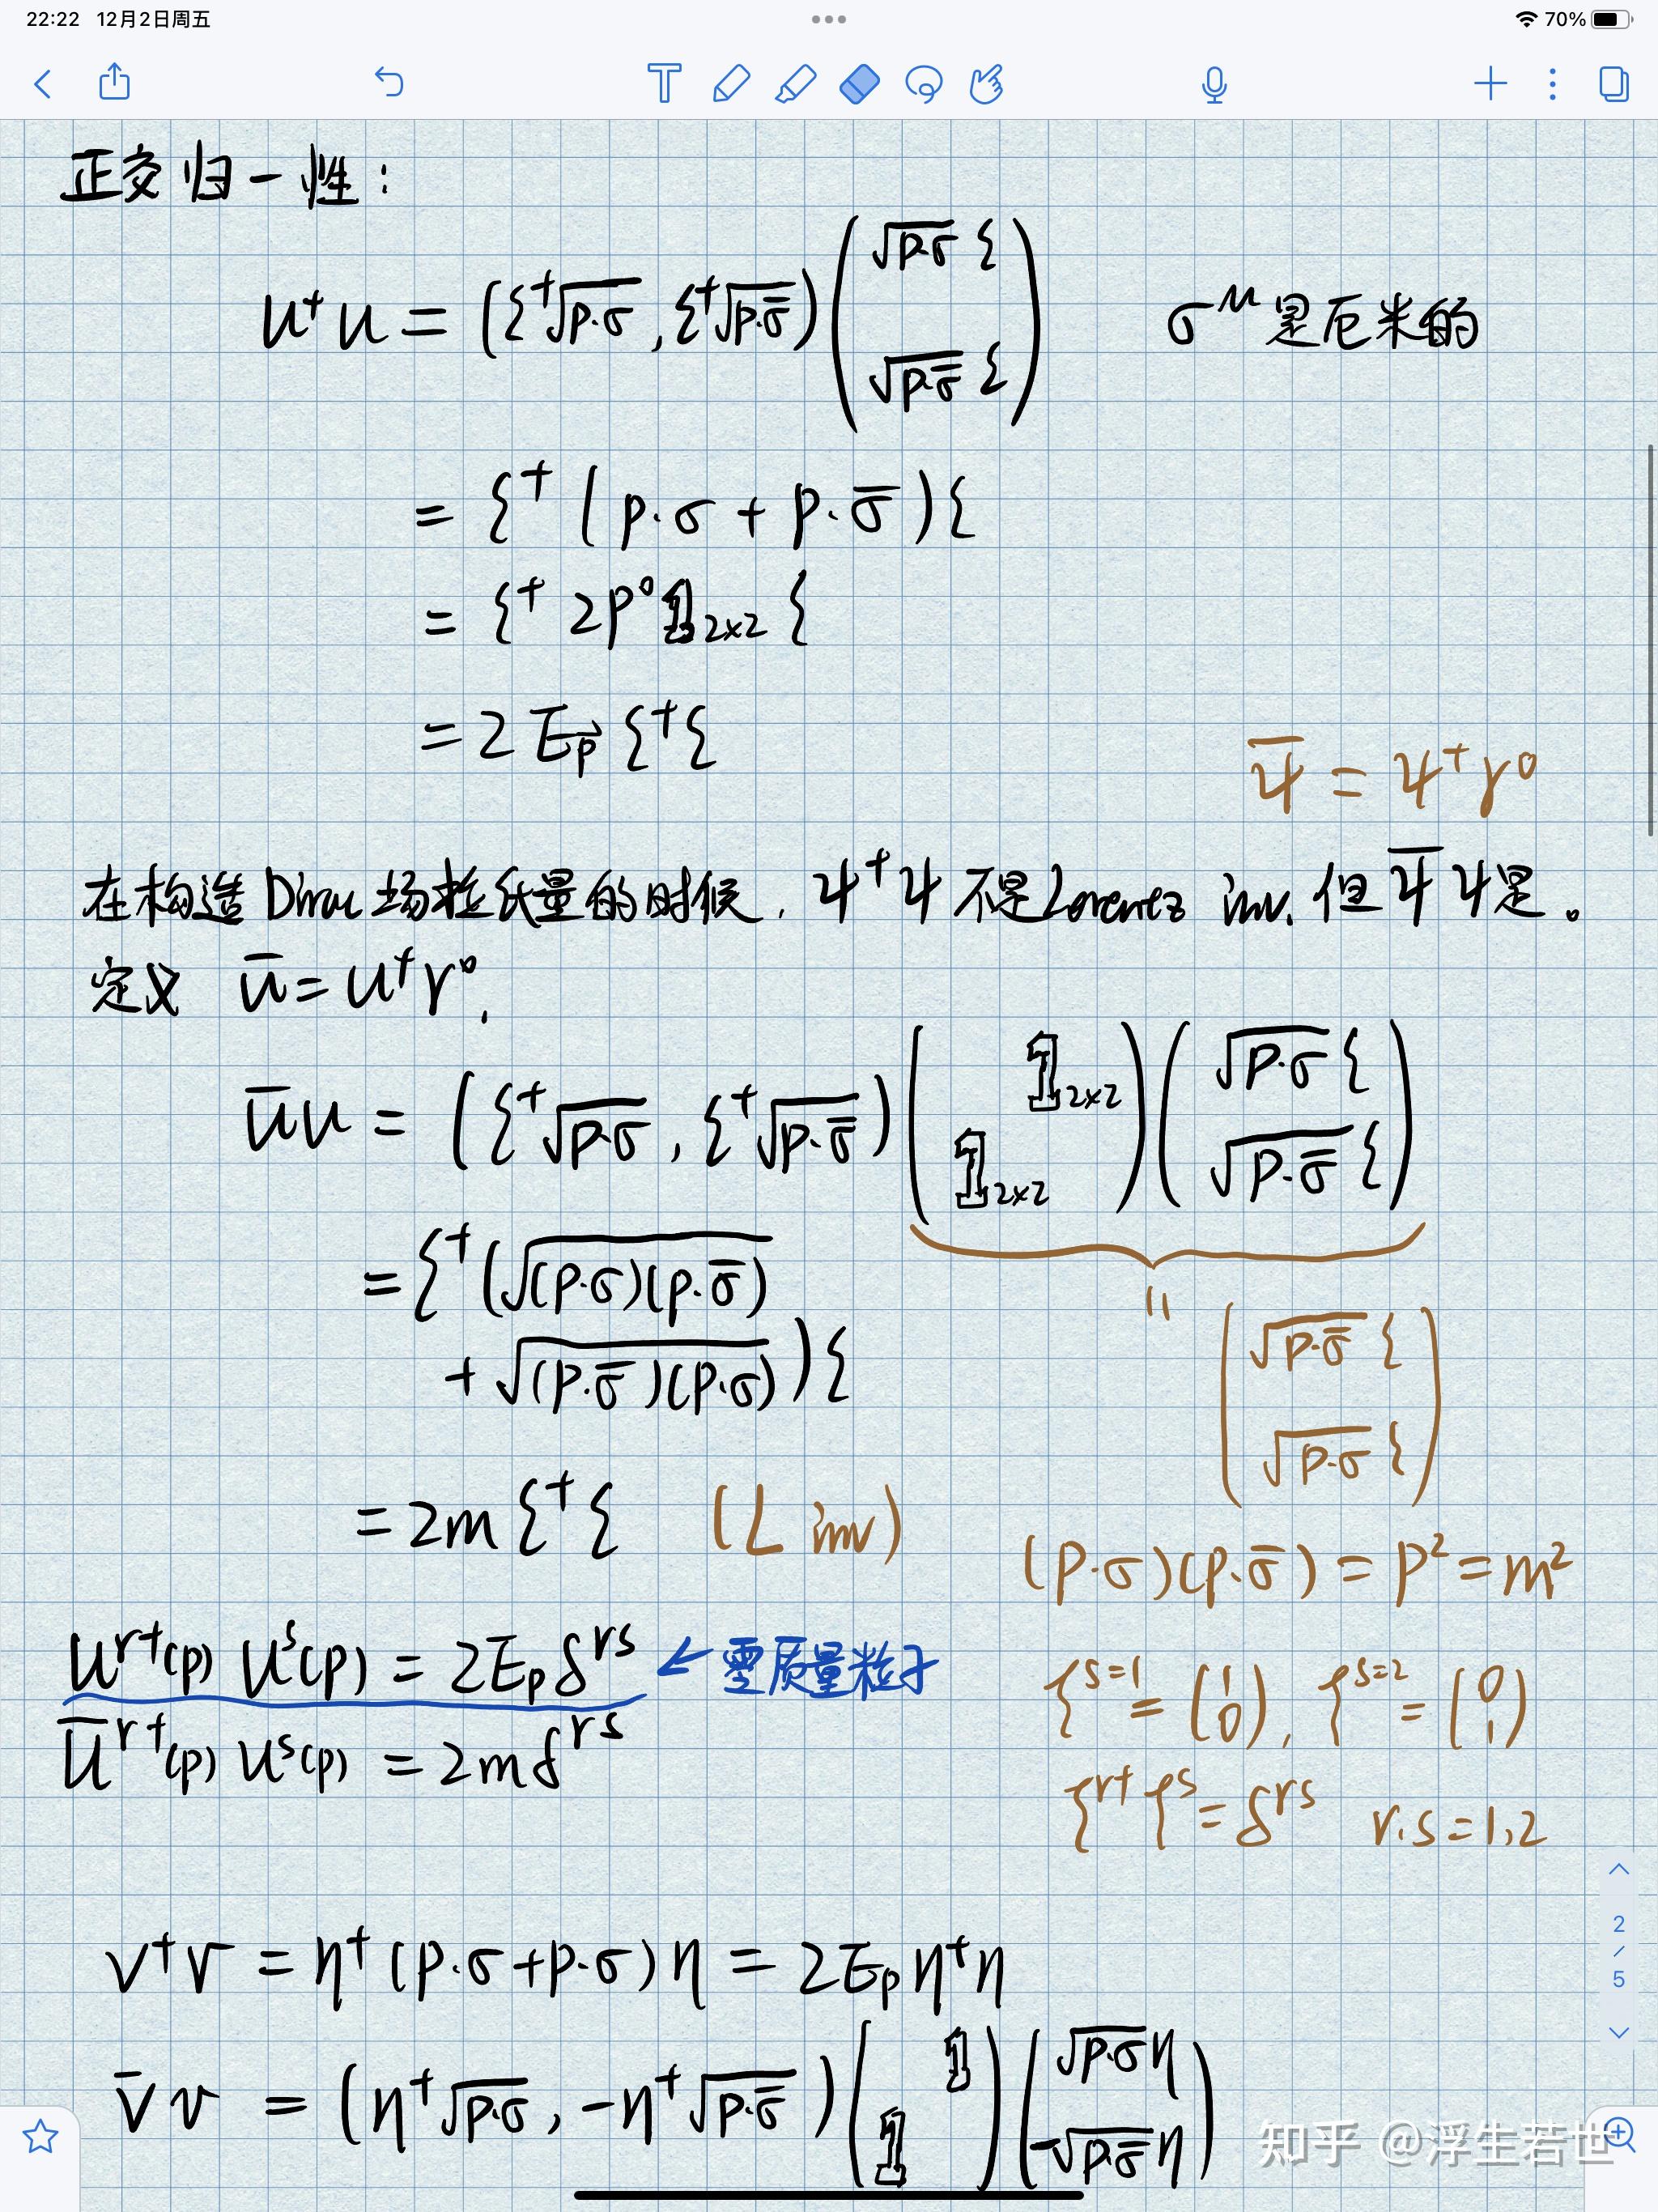 22:22 12月2日周五
70%
正交归一性:
u†u = (ξ†√p·σ, ξ†√p·σ̄) (√p·σ ξ
√p·σ̄ ξ) σ^μ是厄米的
= ξ† (p·σ + p·σ̄) ξ
= ξ† 2p⁰ 𝟙₂ₓ₂ ξ
= 2 E_p⃗ ξ†ξ
ψ̄ = ψ†γ⁰
在构造Dirac场拉氏量的时候, ψ†ψ 不是Lorentz inv. 但 ψ̄ψ是。
定义 ū = u†γ⁰,
ūu = (ξ†√p·σ, ξ†√p·σ̄) ( 𝟙₂ₓ₂
𝟙₂ₓ₂ ) (√p·σ ξ
√p·σ̄ ξ)
= ξ†(√(p·σ)(p·σ̄)
+ √(p·σ̄)(p·σ) ) ξ
"
(√p·σ̄ ξ
√p·σ ξ)
= 2m ξ†ξ (L inv)
(p·σ)(p·σ̄) = p² = m²
u^r†(p) u^s(p) = 2E_p δ^rs ← 零质量粒子
ū^r†(p) u^s(p) = 2m δ^rs
ξ^s=1 = (1
0), ξ^s=2 = (0
1)
ξ^r† ξ^s = δ^rs r.s = 1,2
v†v = η† (p·σ + p·σ) η = 2E_p η†η
v̄v = (η†√p·σ, -η†√p·σ̄) ( 𝟙
𝟙 ) (√p·σ η
-√p·σ̄ η)
2
/
5
知乎 @浮生若世